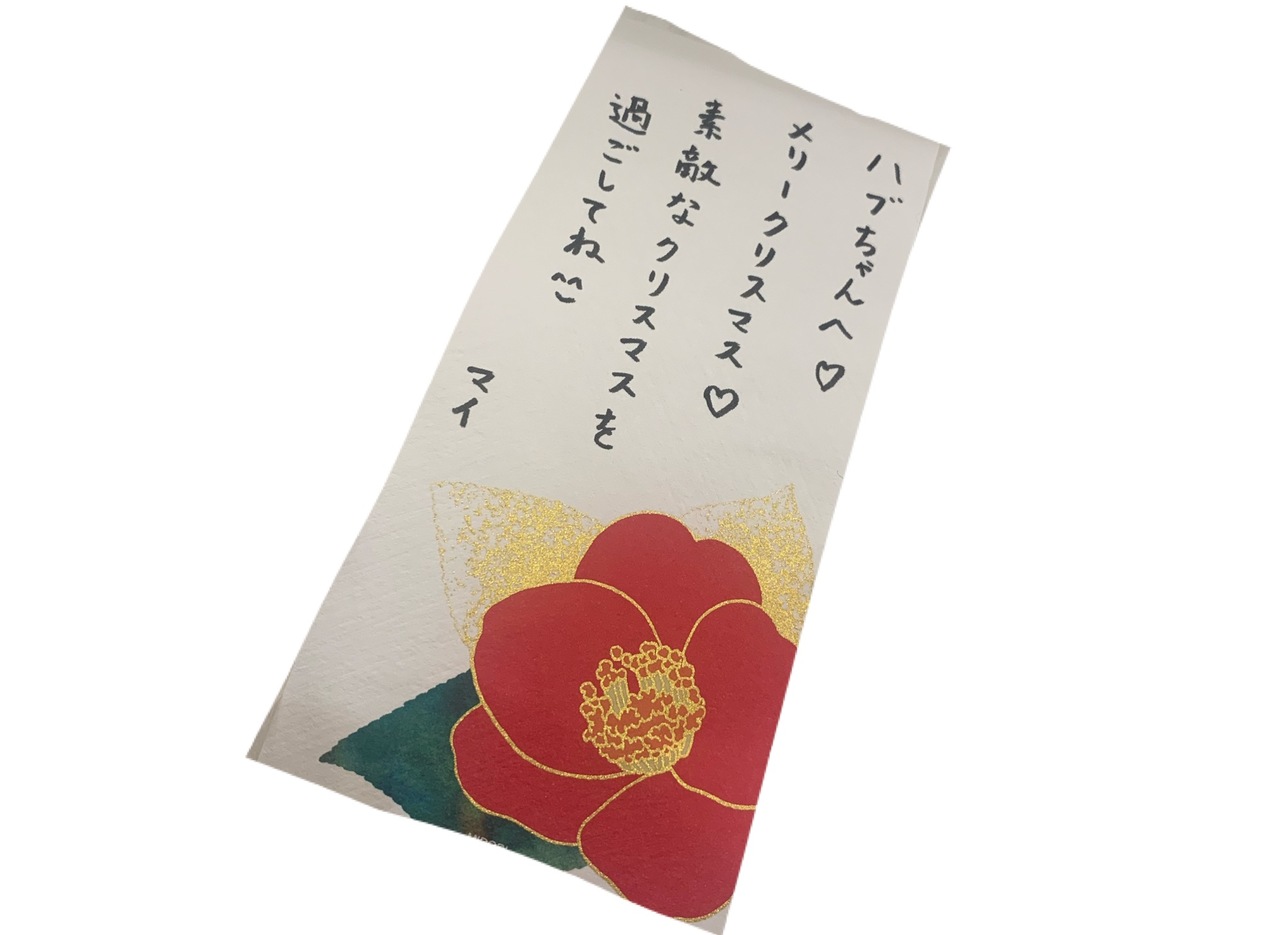 ハブちゃんへ♡
メリークリスマス♡
素敵なクリスマスを
過ごしてね^^
マイ
MIDORI